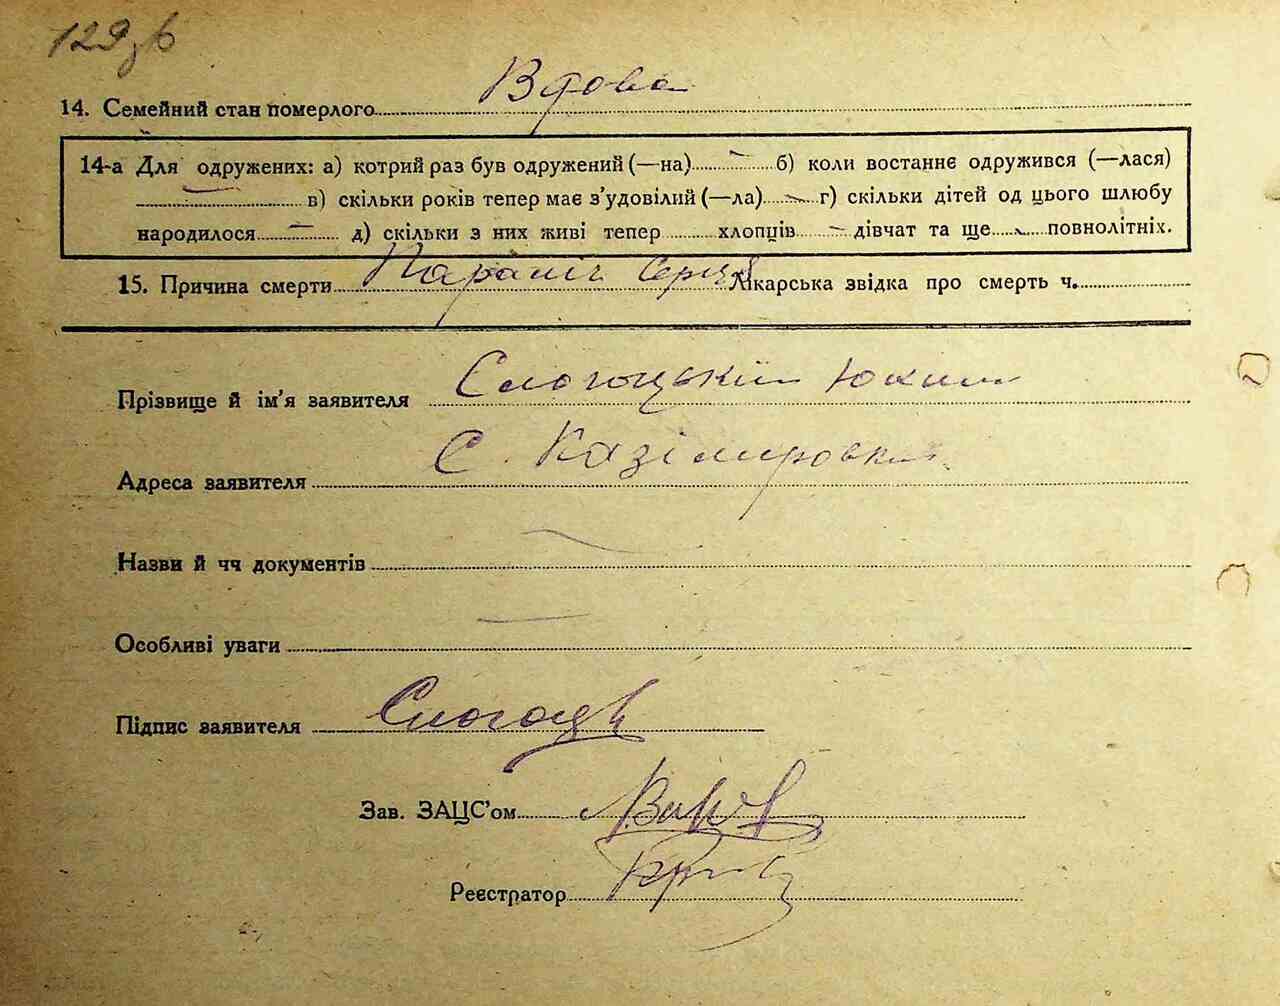 129зв
14. Семейний стан померлого Вдова
14-а Для одружених: а) котрий раз був одружений (—на) — б) коли востаннє одружився (—лася)
— в) скільки років тепер має з’удовілий (—ла) — г) скільки дітей од цього шлюбу
народилося — д) скільки з них живі тепер хлопців — дівчат та ще повнолітніх.
15. Причина смерти Параліч Серця Лікарська звідка про смерть ч.
Прізвище й ім’я заявителя
Адреса заявителя С. Казімировка
Назви й чч документів —
Особливі уваги —
Підпис заявителя
Зав. ЗАЦС’ом
Реєстратор